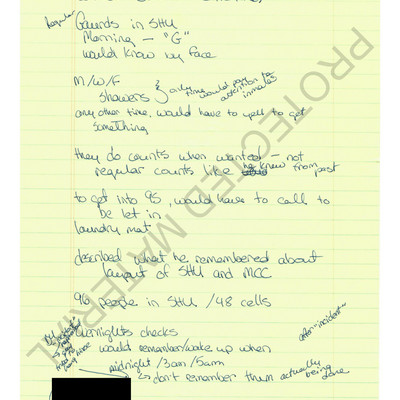 Regular
Guards in SHU
Morning - "G"
would know by face
M/W/F
showers } only time would pay attention to inmates
any other time, would have to yell to get
something
they do counts when wanted - not
regular counts like he knew from past
to get into 95, would have to call to
be let in
laundry mat
described what he remembered about
layout of SHU and MCC
96 people in SHU / 48 cells
after "incident"
Overnights checks
would remember/wake up when
midnight / 3am / 5am
→ don't remember them actually being done
PROTECTED MATERIAL